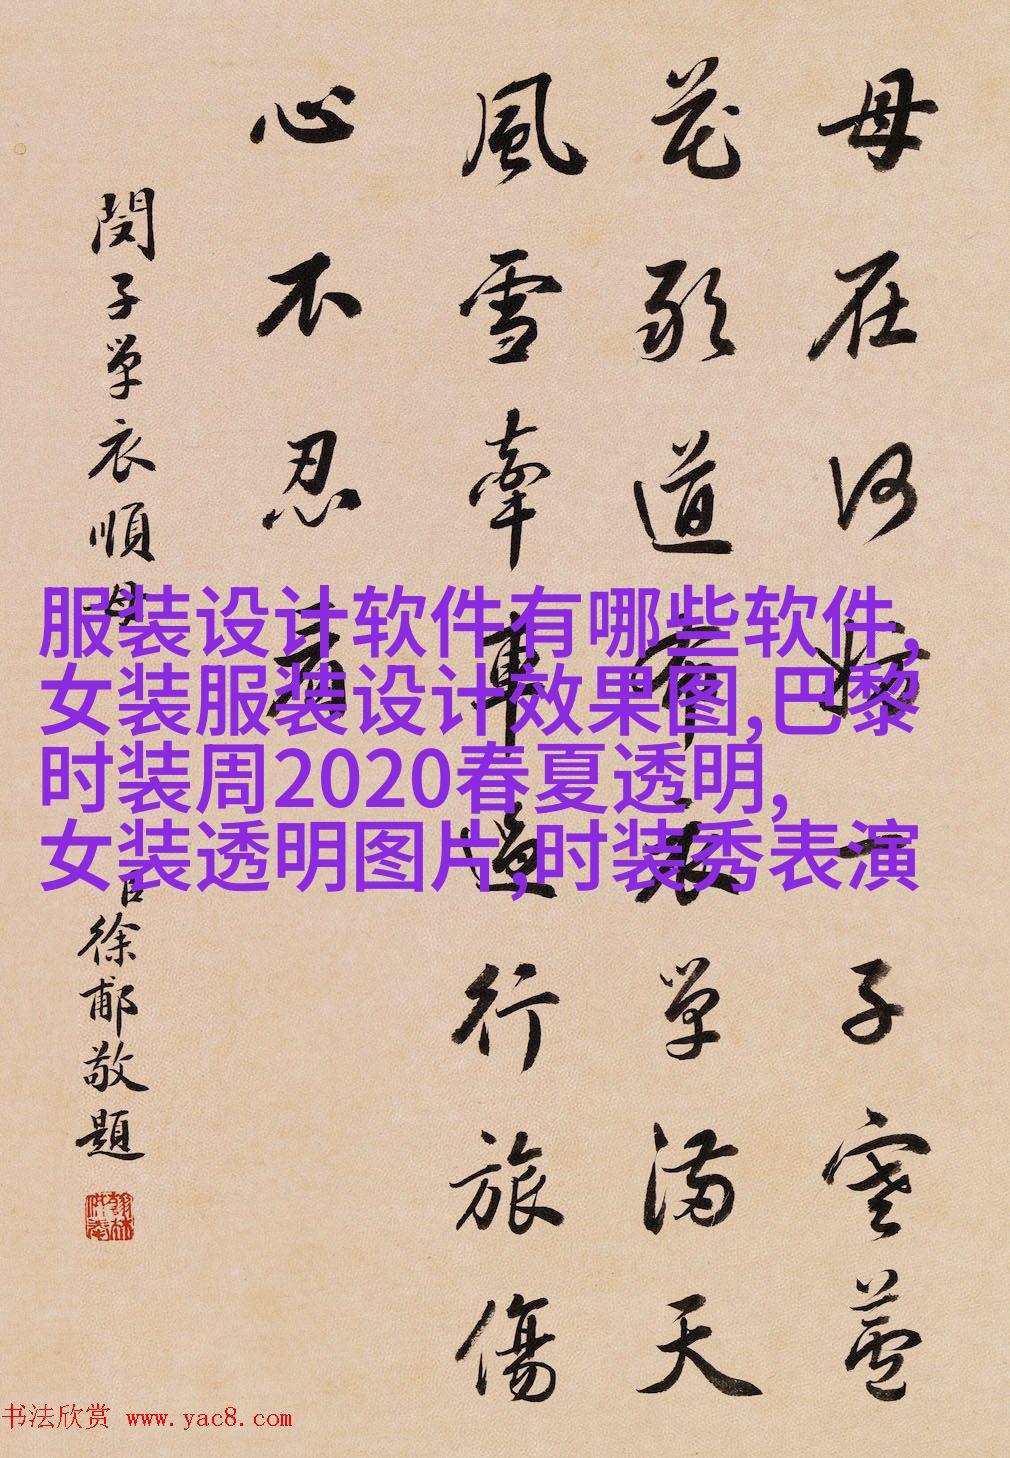 母在何妨一子寒蘆
花敢道布衣單滿天
風雪牽車過行旅傷
心不忍看
閔子單衣順母
臣徐郙敬題
服装设计软件有哪些软件,
女装服装设计效果图,巴黎
时装周2020春夏透明,
女装透明图片,时装秀表演
书法欣赏 www.yac8.com